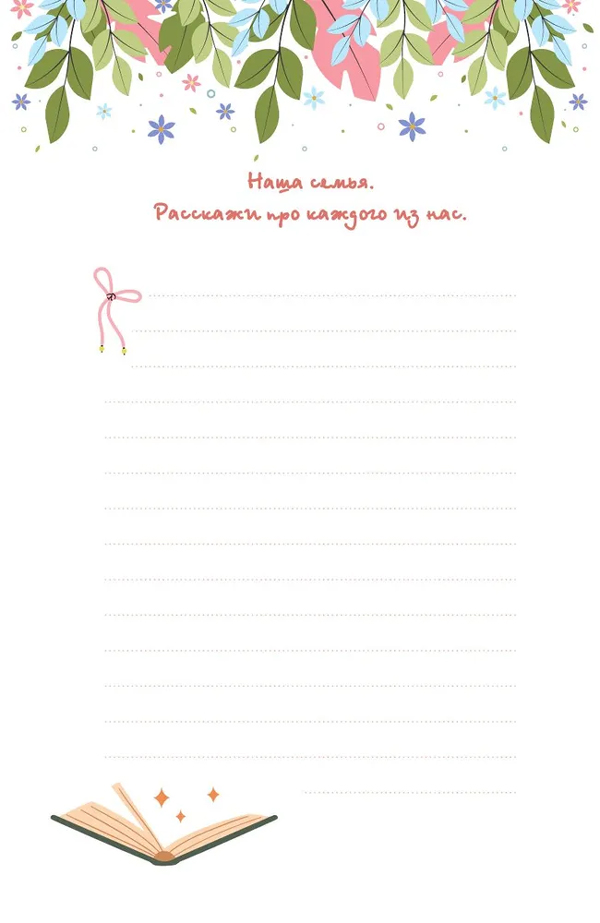 Наша семья.
Расскажи про каждого из нас.